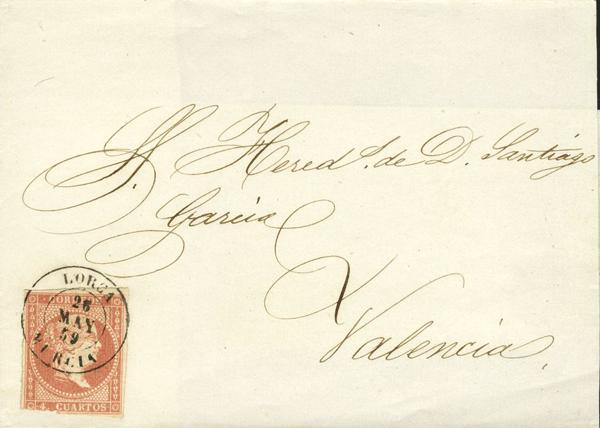 S. Hered.s de D. Santiago
Garcia
Valencia
LORCA
CORREOS
26
MAY
59
MURCIA
4. CUARTOS